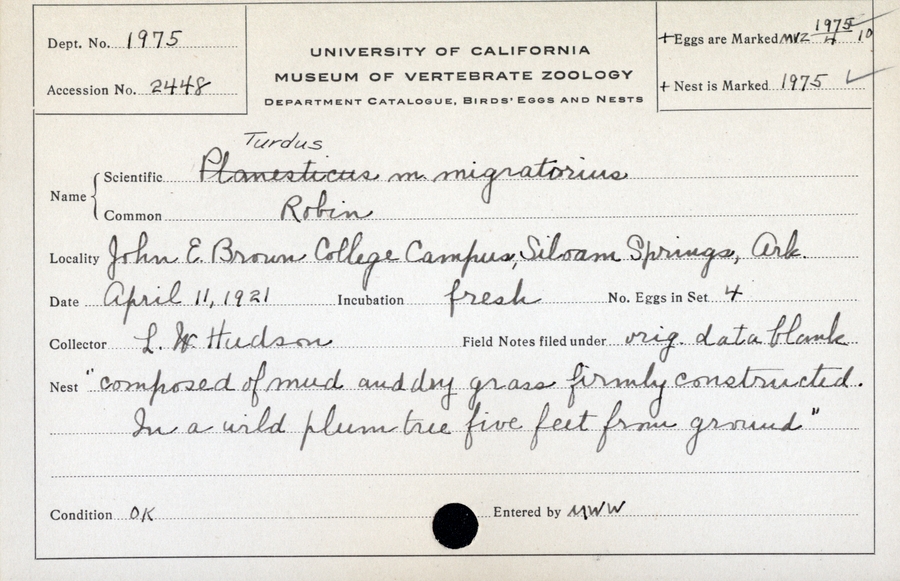 Dept. No. 1975
Accession No. 2448
UNIVERSITY OF CALIFORNIA
MUSEUM OF VERTEBRATE ZOOLOGY
DEPARTMENT CATALOGUE, BIRDS' EGGS AND NESTS
+Eggs are Marked MVZ 1975/4 10
+ Nest is Marked 1975 ✓
Turdus
Name Scientific Planesticus m. migratorius
Common Robin
Locality John E. Brown College Campus, Siloam Springs, Ark.
Date April 11, 1921 Incubation fresh No. Eggs in Set 4
Collector L. W. Hudson Field Notes filed under orig. data blank
Nest "composed of mud and dry grass firmly constructed.
In a wild plum tree five feet from ground"
Condition OK Entered by MWW